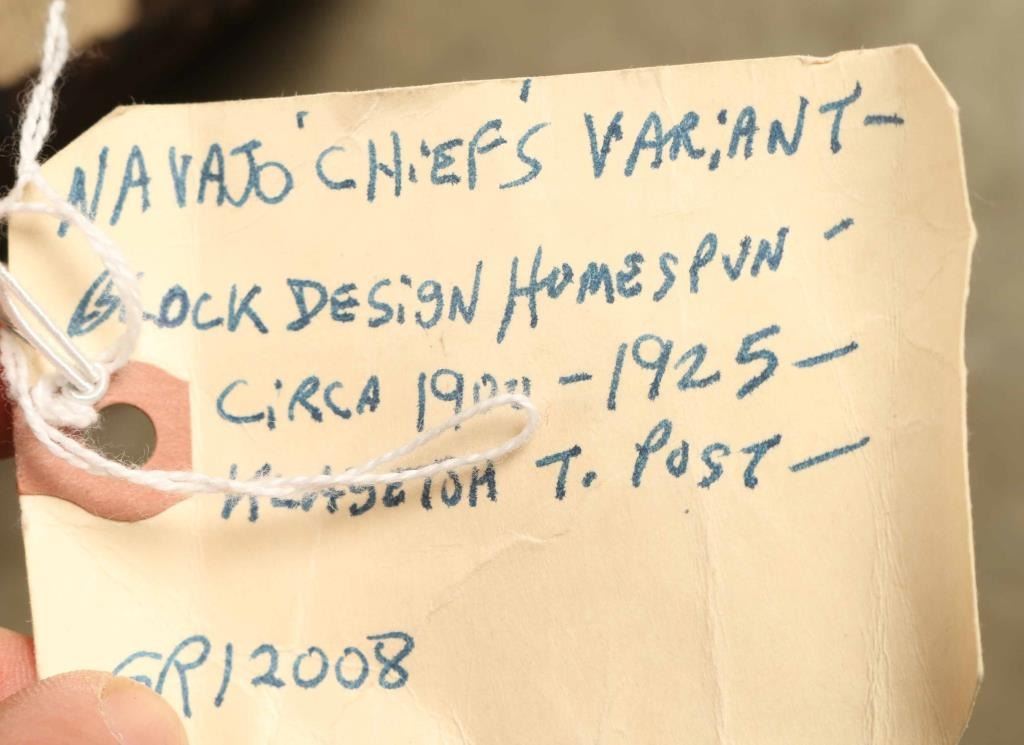 NAVAJO 'CHIEF'S' VARIANT -
BLOCK DESIGN HOMESPUN -
CIRCA - 1925 -
T. POST -
GR12008